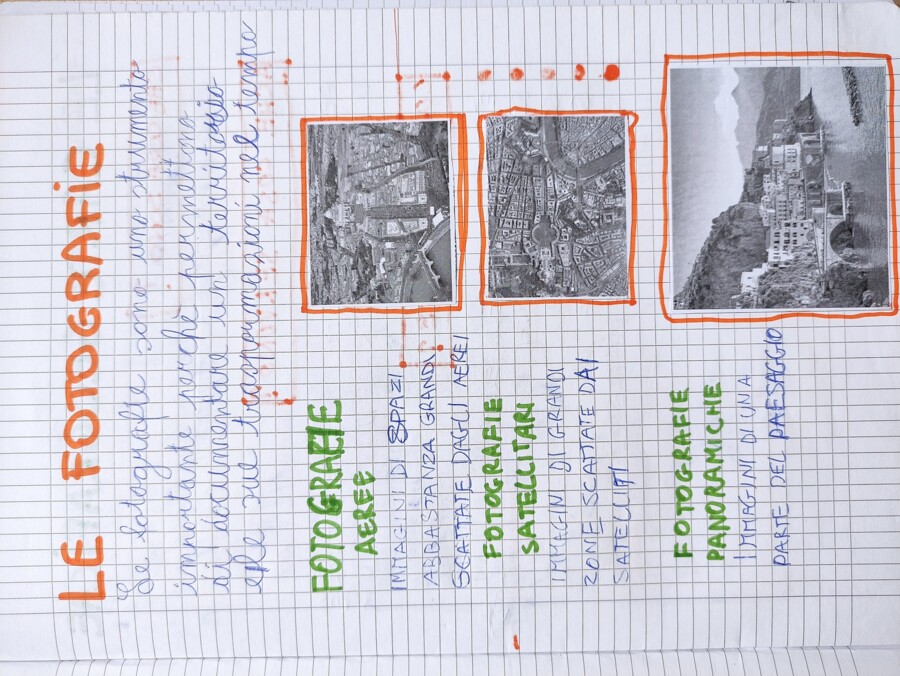 LE FOTOGRAFIE
Le fotografie sono uno strumento
importante perchè permettono
di documentare un territorio
e le sue trasformazioni nel tempo
FOTOGRAFIE
AEREE
IMMAGINI DI SPAZI
ABBASTANZA GRANDI
SCATTATE DAGLI AEREI
FOTOGRAFIE
SATELLITARI
IMMAGIN DI GRANDI
ZONE SCATTATE DAI
SATELLITI
FOTOGRAFIE
PANORAMICHE
IMMAGINI DI UNA
PARTE DEL PAESAGGIO